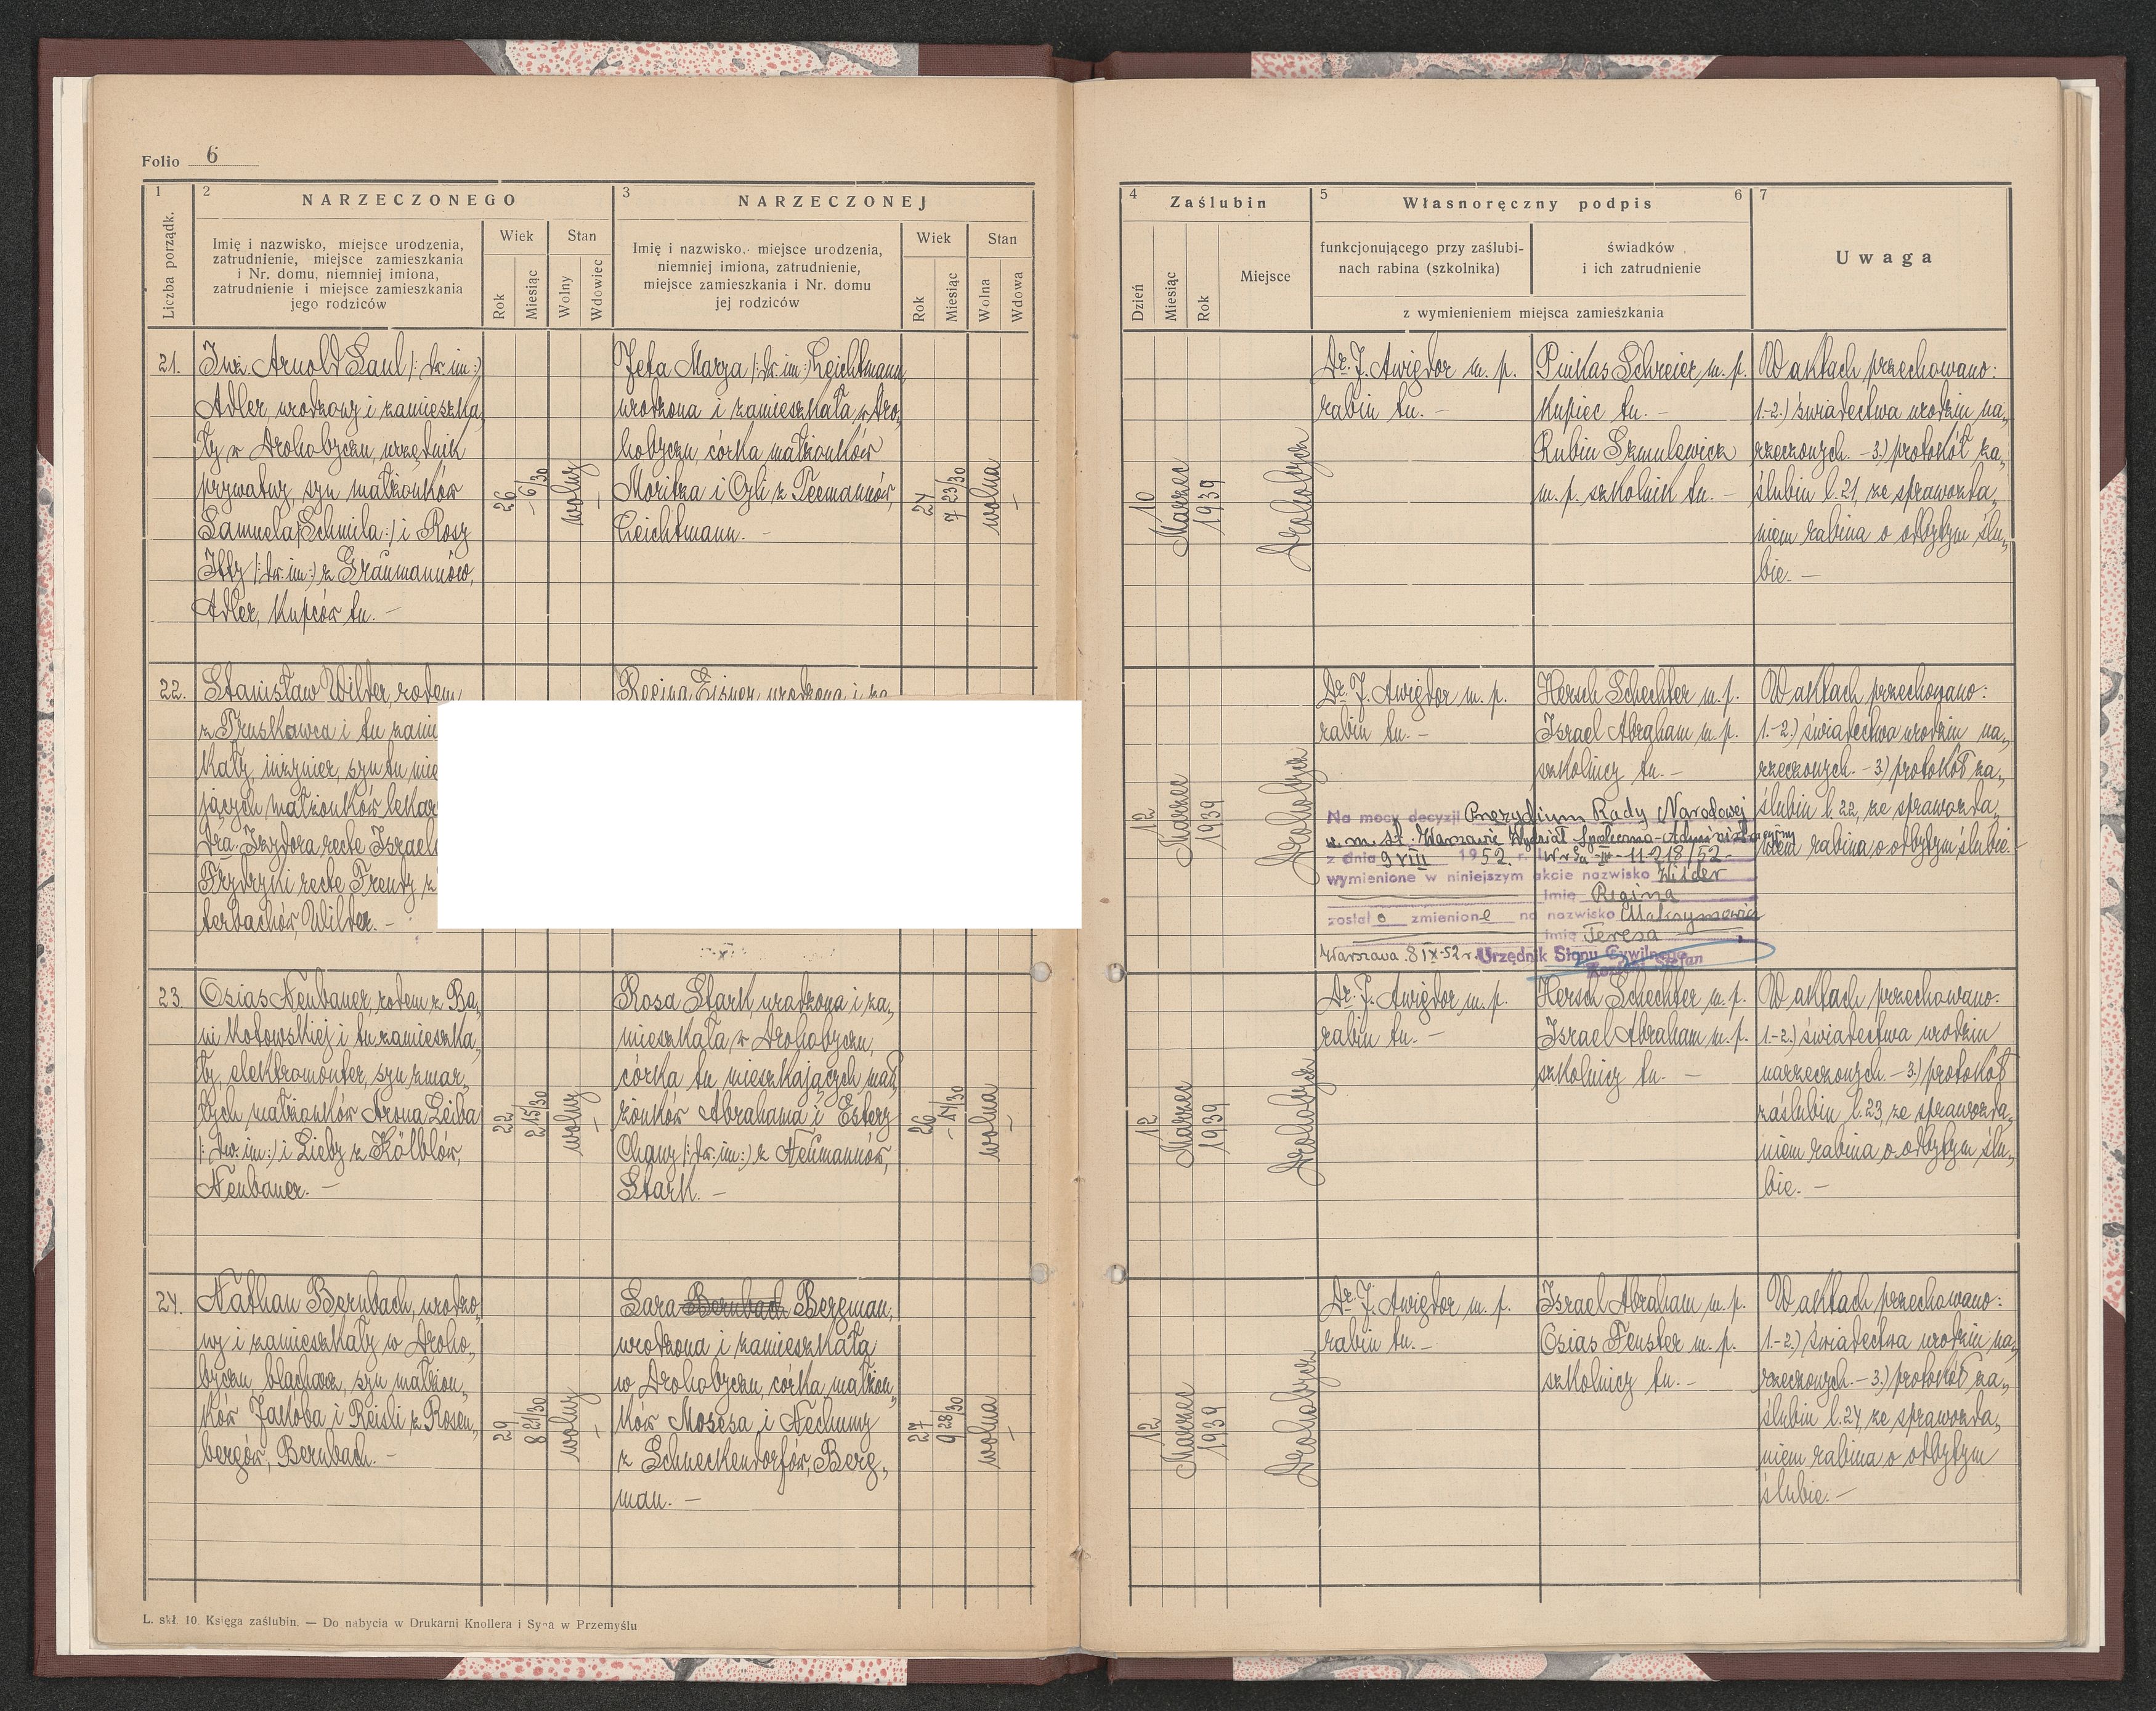 Folio 6
1
2
NARZECZONEGO
3
NARZECZONEJ
Liczba porządk.
Imię i nazwisko, miejsce urodzenia,
zatrudnienie, miejsce zamieszkania
i Nr. domu, niemniej imiona,
zatrudnienie i miejsce zamieszkania
jego rodziców
Wiek
Stan
Rok
Miesiąc
Wolny
Wdowiec
Imię i nazwisko, miejsce urodzenia,
niemniej imiona, zatrudnienie,
miejsce zamieszkania i Nr. domu
jej rodziców
Wiek
Stan
Rok
Miesiąc
Wolna
Wdowa
21.
Inż. Arnold Saul /: dw. im :/
Adler, urodzony i zamieszka„
ły w Drohobyczu, urzędnik
prywatny syn małżonków
Samuela /:Schmila:/ i Rosy
Itty /: dw. im :/ z Graumannów,
Adler, kupców tu. —
26
- 6/30
wolny
—
Jeta Marza /: dw. im :/ Leichtmann
urodzona i zamieszkała w Dro„
hobyczu, córka małżonków
Moritza i Cyli z Peemannów,
Leichtmann. —
24
7 23/30
wolna
—
22.
Stanisław Wilder, rodem
z Truskawca i tu zamie
kały, inżynier, syn tu mie
jących małżonków lekar
Dra. Izydora recte Israel
Frydryki recte Freudy z
terbachów, Wilder. —
Regina Eisner, urodzona i za
23.
Osias Neubauer, rodem z Ba„
ni Kotowskiej i tu zamieszka„
ły, elektromonter, syn zmar„
łych małżonków Arona Leiba
/: dw. im :/ i Lieby z Kälblów,
Neubauer. —
22
2 15/30
wolny
—
Rosa Stark, urodzona i za„
mieszkała w Drohobyczu,
córka tu mieszkających mał„
żonków Abrahama i Estery
Chany /: dw. im :/ z Neumannów,
Stark. —
26
- 14/30
wolna
—
24.
Nathan Bernbach, urodzo„
ny i zamieszkały w Droho„
byczu, blacharz, syn małżon„
ków Jakoba i Reisli z Rosen„
bergów, Bernbach. —
29
8 21/30
wolny
—
Sara Bernbach Bergman,
urodzona i zamieszkała
w Drohobyczu, córka małżon„
ków Mosesa i Nechumy
z Schneckendorfów, Berg„
man. —
27
9 28/30
wolna
—
L. skł. 10. Księga zaślubin. — Do nabycia w Drukarni Knollera i Syna w Przemyślu
4
Zaślubin
5
Własnoręczny podpis
6
7
Dzień
Miesiąc
Rok
Miejsce
funkcjonującego przy zaślubi-
nach rabina (szkolnika)
świadków
i ich zatrudnienie
z wymienieniem miejsca zamieszkania
Uwaga
10
Marzec
1939
Drohobycz
Dr. J. Awigdor m. p.
rabin tu. —
Pinkas Schreier m. p.
kupiec tu. —
Rubin Szmulewicz
m. p. szkolnik tu. —
W aktach przechowano:
1.-2.) świadectwa urodzin na„
rzeczonych. — 3.) protokół za„
ślubin l. 21, ze sprawozda„
niem rabina o odbytym ślu„
bie. —
12
Marzec
1939
Drohobycz
Dr. J. Awigdor m. p.
rabin tu. —
Hersch Schechter m. p.
Israel Abraham m. p.
szkolnicy tu. —
W aktach przechowano:
1.-2.) świadectwa urodzin na„
rzeczonych. — 3.) protokół za„
ślubin l. 22, ze sprawozda„
niem rabina o odbytym ślubie. —
Na mocy decyzji Prezydium Rady Narodowej
w m. st. Warszawie Wydział Społeczno-Administracyjny
z dnia 9 VIII 1952 r.
wymienione w niniejszym akcie nazwisko Wilder
imię Regina
został o zmienione na nazwisko Maksymowicz
imię Teresa
Warszawa 8 IX-52 r. Urzędnik Stanu Cywilnego
Stefan
12
Marzec
1939
Drohobycz
Dr. J. Awigdor m. p.
rabin tu. —
Hersch Schechter m. p.
Israel Abraham m. p.
szkolnicy tu. —
W aktach przechowano:
1.-2.) świadectwa urodzin
narzeczonych. — 3.) protokół
zaślubin l. 23, ze sprawozda„
niem rabina o odbytym ślu„
bie. —
12
Marzec
1939
Drohobycz
Dr. J. Awigdor m. p.
rabin tu. —
Israel Abraham m. p.
Osias Fenster m. p.
szkolnicy tu. —
W aktach przechowano:
1.-2.) świadectwa urodzin na„
rzeczonych. — 3.) protokół za„
ślubin l. 24, ze sprawozda„
niem rabina o odbytym
ślubie. —